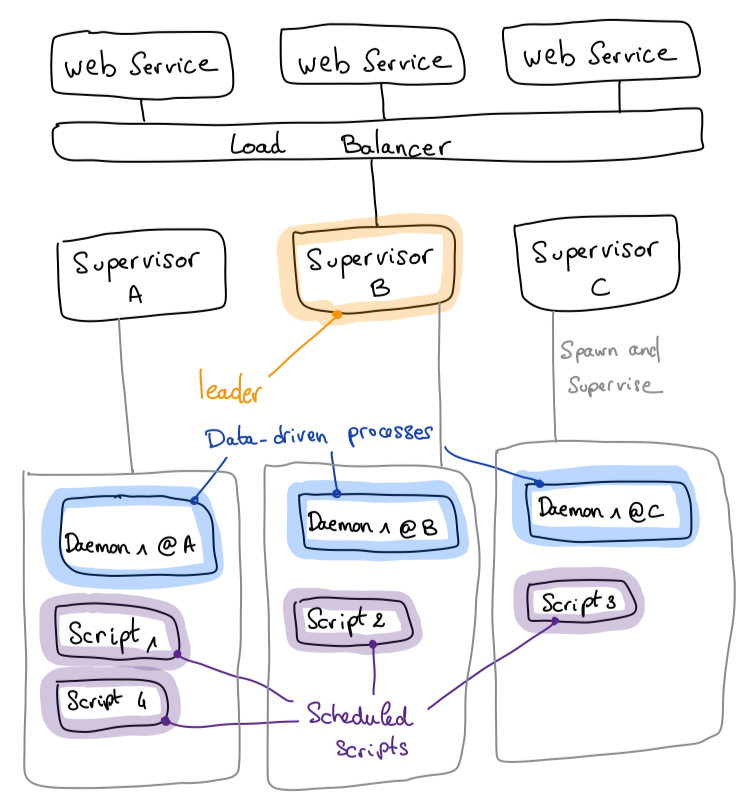 Web Service
Web Service
Web Service
Load Balancer
Supervisor
A
Supervisor
B
Supervisor
C
Spawn and
Supervise
leader
Data-driven processes
Daemon 1 @A
Daemon 1 @B
Daemon 1 @C
Script 1
Script 2
Script 3
Script 4
Scheduled
scripts